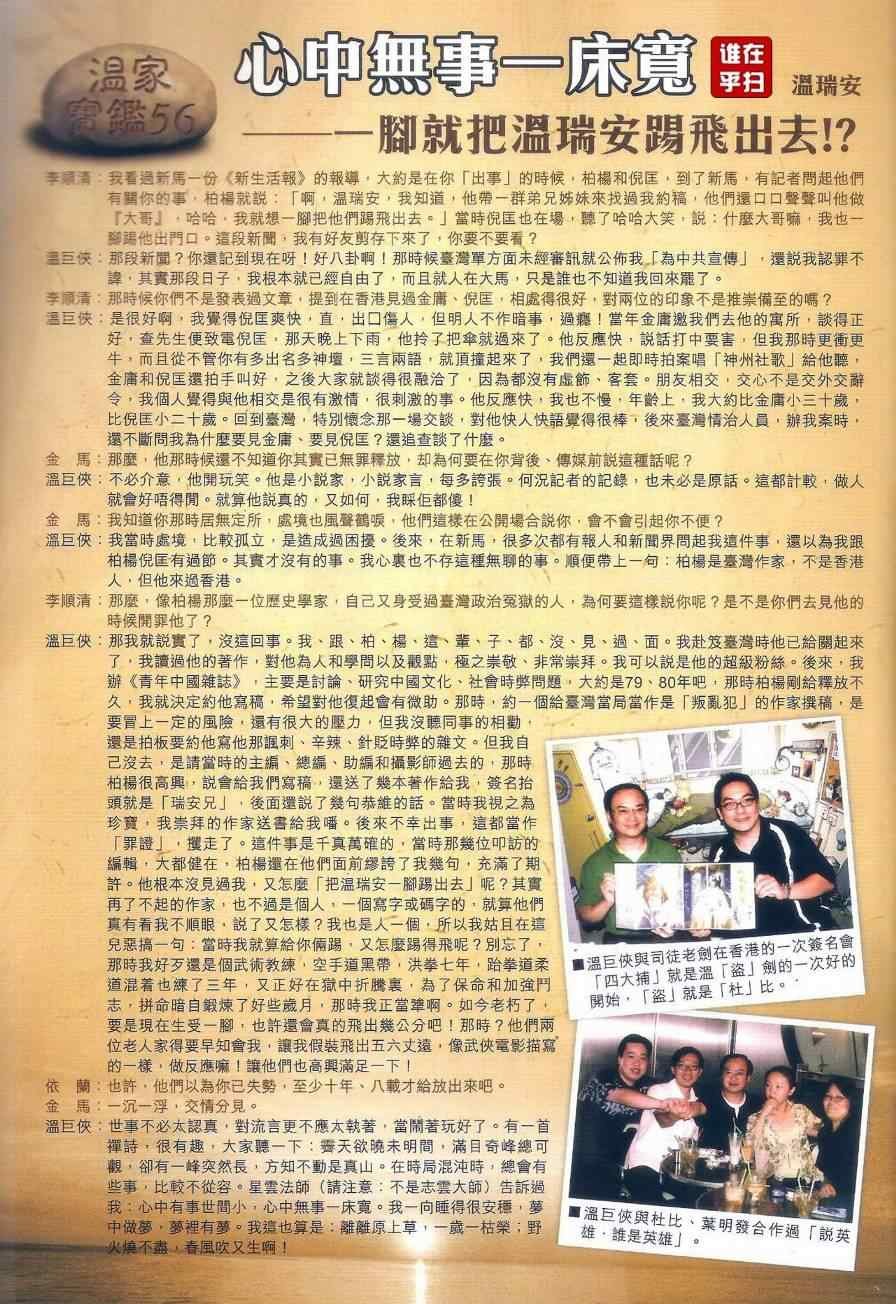 溫家
寶鑑56
心中無事一床寬
谁在
乎扫
溫瑞安
——一腳就把溫瑞安踢飛出去!?
李順清：我看過新馬一份《新生活報》的報導，大約是在你「出事」的時候，柏楊和倪匡，到了新馬，有記者問起他們
有關你的事，柏楊就說：「啊，溫瑞安，我知道，他帶一群弟兄姊妹來找過我約稿，他們還口口聲聲叫他做
『大哥』，哈哈，我就想一腳把他們踢飛出去。」當時倪匡也在場，聽了哈哈大笑，說：什麼大哥嘛，我也一
腳踢他出門口。這段新聞，我有好友剪存下來了，你要不要看？
溫巨俠：那段新聞？你還記到現在呀！好八卦啊！那時候臺灣單方面未經審訊就公佈我「為中共宣傳」，還說我認罪不
諱，其實那段日子，我根本就已經自由了，而且就人在大馬，只是誰也不知道我回來罷了。
李順清：那時候你們不是發表過文章，提到在香港見過金庸、倪匡，相處得很好，對兩位的印象不是推崇備至的嗎？
溫巨俠：是很好啊，我覺得倪匡爽快，直，出口傷人，但明人不作暗事，過癮！當年金庸邀我們去他的寓所，談得正
好，查先生便致電倪匡，那天晚上下雨，他拎了把傘就過來了。他反應快，說話打中要害，但我那時更衝更
牛，而且從不管你有多出名多神壇，三言兩語，就頂撞起來了，我們還一起即時拍案唱「神州社歌」給他聽，
金庸和倪匡還拍手叫好，之後大家就談得很融洽了，因為都沒有虛飾、客套。朋友相交，交心不是交外交辭
令，我個人覺得與他相交是很有激情，很刺激的事。他反應快，我也不慢，年齡上，我大約比金庸小三十歲，
比倪匡小二十歲。回到臺灣，特別懷念那一場交談，對他快人快語覺得很棒，後來臺灣情治人員，辦我案時，
還不斷問我為什麼要見金庸、要見倪匡？還追查談了什麼。
金　馬：那麼，他那時候還不知道你其實已無罪釋放，却為何要在你背後、傳媒前說這種話呢？
溫巨俠：不必介意，他開玩笑。他是小說家，小說家言，每多誇張。何況記者的記錄，也未必是原話。這都計較，做人
就會好唔得閒。就算他說真的，又如何，我睬佢都傻！
金　馬：我知道你那時居無定所，處境也風聲鶴唳，他們這樣在公開場合說你，會不會引起你不便？
溫巨俠：我當時處境，比較孤立，是造成過困擾。後來，在新馬，很多次都有報人和新聞界問起我這件事，還以為我跟
柏楊倪匡有過節。其實才沒有的事。我心裏也不存這種無聊的事。順便帶上一句：柏楊是臺灣作家，不是香港
人，但他來過香港。
李順清：那麼，像柏楊那麼一位歷史學家，自己又身受過臺灣政治冤獄的人，為何要這樣說你呢？是不是你們去見他的
時候開罪他了？
溫巨俠：那我就說實了，沒這回事。我、跟、柏、楊、這、輩、子、都、沒、見、過、面。我赴笈臺灣時他已給關起來
了，我讀過他的著作，對他為人和學問以及觀點，極之崇敬、非常崇拜。我可以說是他的超級粉絲。後來，我
辦《青年中國雜誌》，主要是討論、研究中國文化、社會時弊問題，大約是79、80年吧，那時柏楊剛給釋放不
久，我就決定約他寫稿，希望對他復起會有微助。那時，約一個給臺灣當局當作是「叛亂犯」的作家撰稿，是
要冒上一定的風險，還有很大的壓力，但我沒聽同事的相勸，
還是拍板要約他寫他那諷刺、辛辣、針貶時弊的雜文。但我自
己沒去，是請當時的主編、總編、助編和攝影師過去的，那時
柏楊很高興，說會給我們寫稿，還送了幾本著作給我，簽名抬
頭就是「瑞安兄」，後面還說了幾句恭維的話。當時我視之為
珍寶，我崇拜的作家送書給我噃。後來不幸出事，這都當作
「罪證」，攫走了。這件事是千真萬確的，當時那幾位叩訪的
編輯，大都健在，柏楊還在他們面前繆誇了我幾句，充滿了期
許。他根本沒見過我，又怎麼「把溫瑞安一腳踢出去」呢？其實
再了不起的作家，也不過是個人，一個寫字或碼字的，就算他們
真有看我不順眼，說了又怎樣？我也是人一個，所以我姑且在這
兒惡搞一句：當時我就算給你倆踢，又怎麼踢得飛呢？別忘了，
那時我好歹還是個武術教練，空手道黑帶，洪拳七年，跆拳道柔
道混着也練了三年，又正好在獄中折騰裏，為了保命和加強鬥
志，拼命暗自鍛煉了好些歲月，那時我正當肂啊。如今老朽了，
要是現在生受一腳，也許還會真的飛出幾公分吧！那時？他們兩
位老人家得要早知會我，讓我假裝飛出五六丈遠，像武俠電影描寫
的一樣，做反應嘛！讓他們也高興滿足一下！
依　蘭：也許，他們以為你已失勢，至少十年、八載才給放出來吧。
金　馬：一沉一浮，交情分見。
溫巨俠：世事不必太認真，對流言更不應太執著，當鬧著玩好了。有一首
禪詩，很有趣，大家聽一下：霽天欲曉未明間，滿目奇峰總可
觀，卻有一峰突然長，方知不動是真山。在時局混沌時，總會有
些事，比較不從容。星雲法師（請注意：不是志雲大師）告訴過
我：心中有事世間小，心中無事一床寬。我一向睡得很安穩，夢
中做夢，夢裡有夢。我這也算是：離離原上草，一歲一枯榮；野
火燒不盡，春風吹又生啊！
■溫巨俠與司徒老劍在香港的一次簽名會
「四大捕」就是溫「盜」劍的一次好的
開始，「盜」就是「杜」比。
■溫巨俠與杜比、葉明發合作過「說英
雄．誰是英雄」。